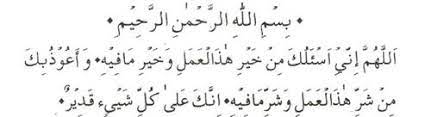 • بِسْمِ اللّٰهِ الرَّحْمٰنِ الرَّحِيْمِ •
اَللّٰهُمَّ اِنِّيْ اَسْئَلُكَ مِنْ خَيْرِ هٰذَالْعَمَلِ وَخَيْرِ مَافِيْهِ• وَ اَعُوْذُبِكَ
مِنْ شَرِّ هٰذَالْعَمَلِ وَشَرِّمَافِيْهِ• اِنَّكَ عَلىٰ كُلِّ شَيْيءٍ قَدِيْرٌ•